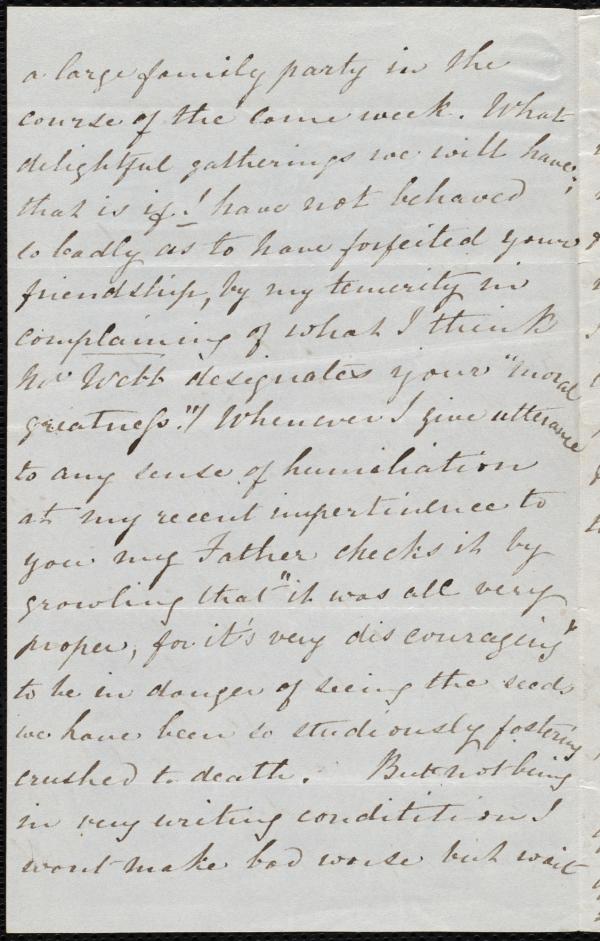 a large family party in the
course of the come week. What
delightful gatherings we will have;
that is if I have not behaved
so badly as to have forfeited your
friendship, by my temerity in
complaining of what I think
Mr Webb designates your "moral
greatness"!/ Whenever I give utterance
to any sense of humiliation
at my recent impertinence to
you my Father checks it by
growling that "it was all very
proper, for it's very discouraging"
to be in danger of seeing the seeds
we have been so studiously fostering
crushed to death. But not being
in very writing condititions I
wont make bad worse but wait